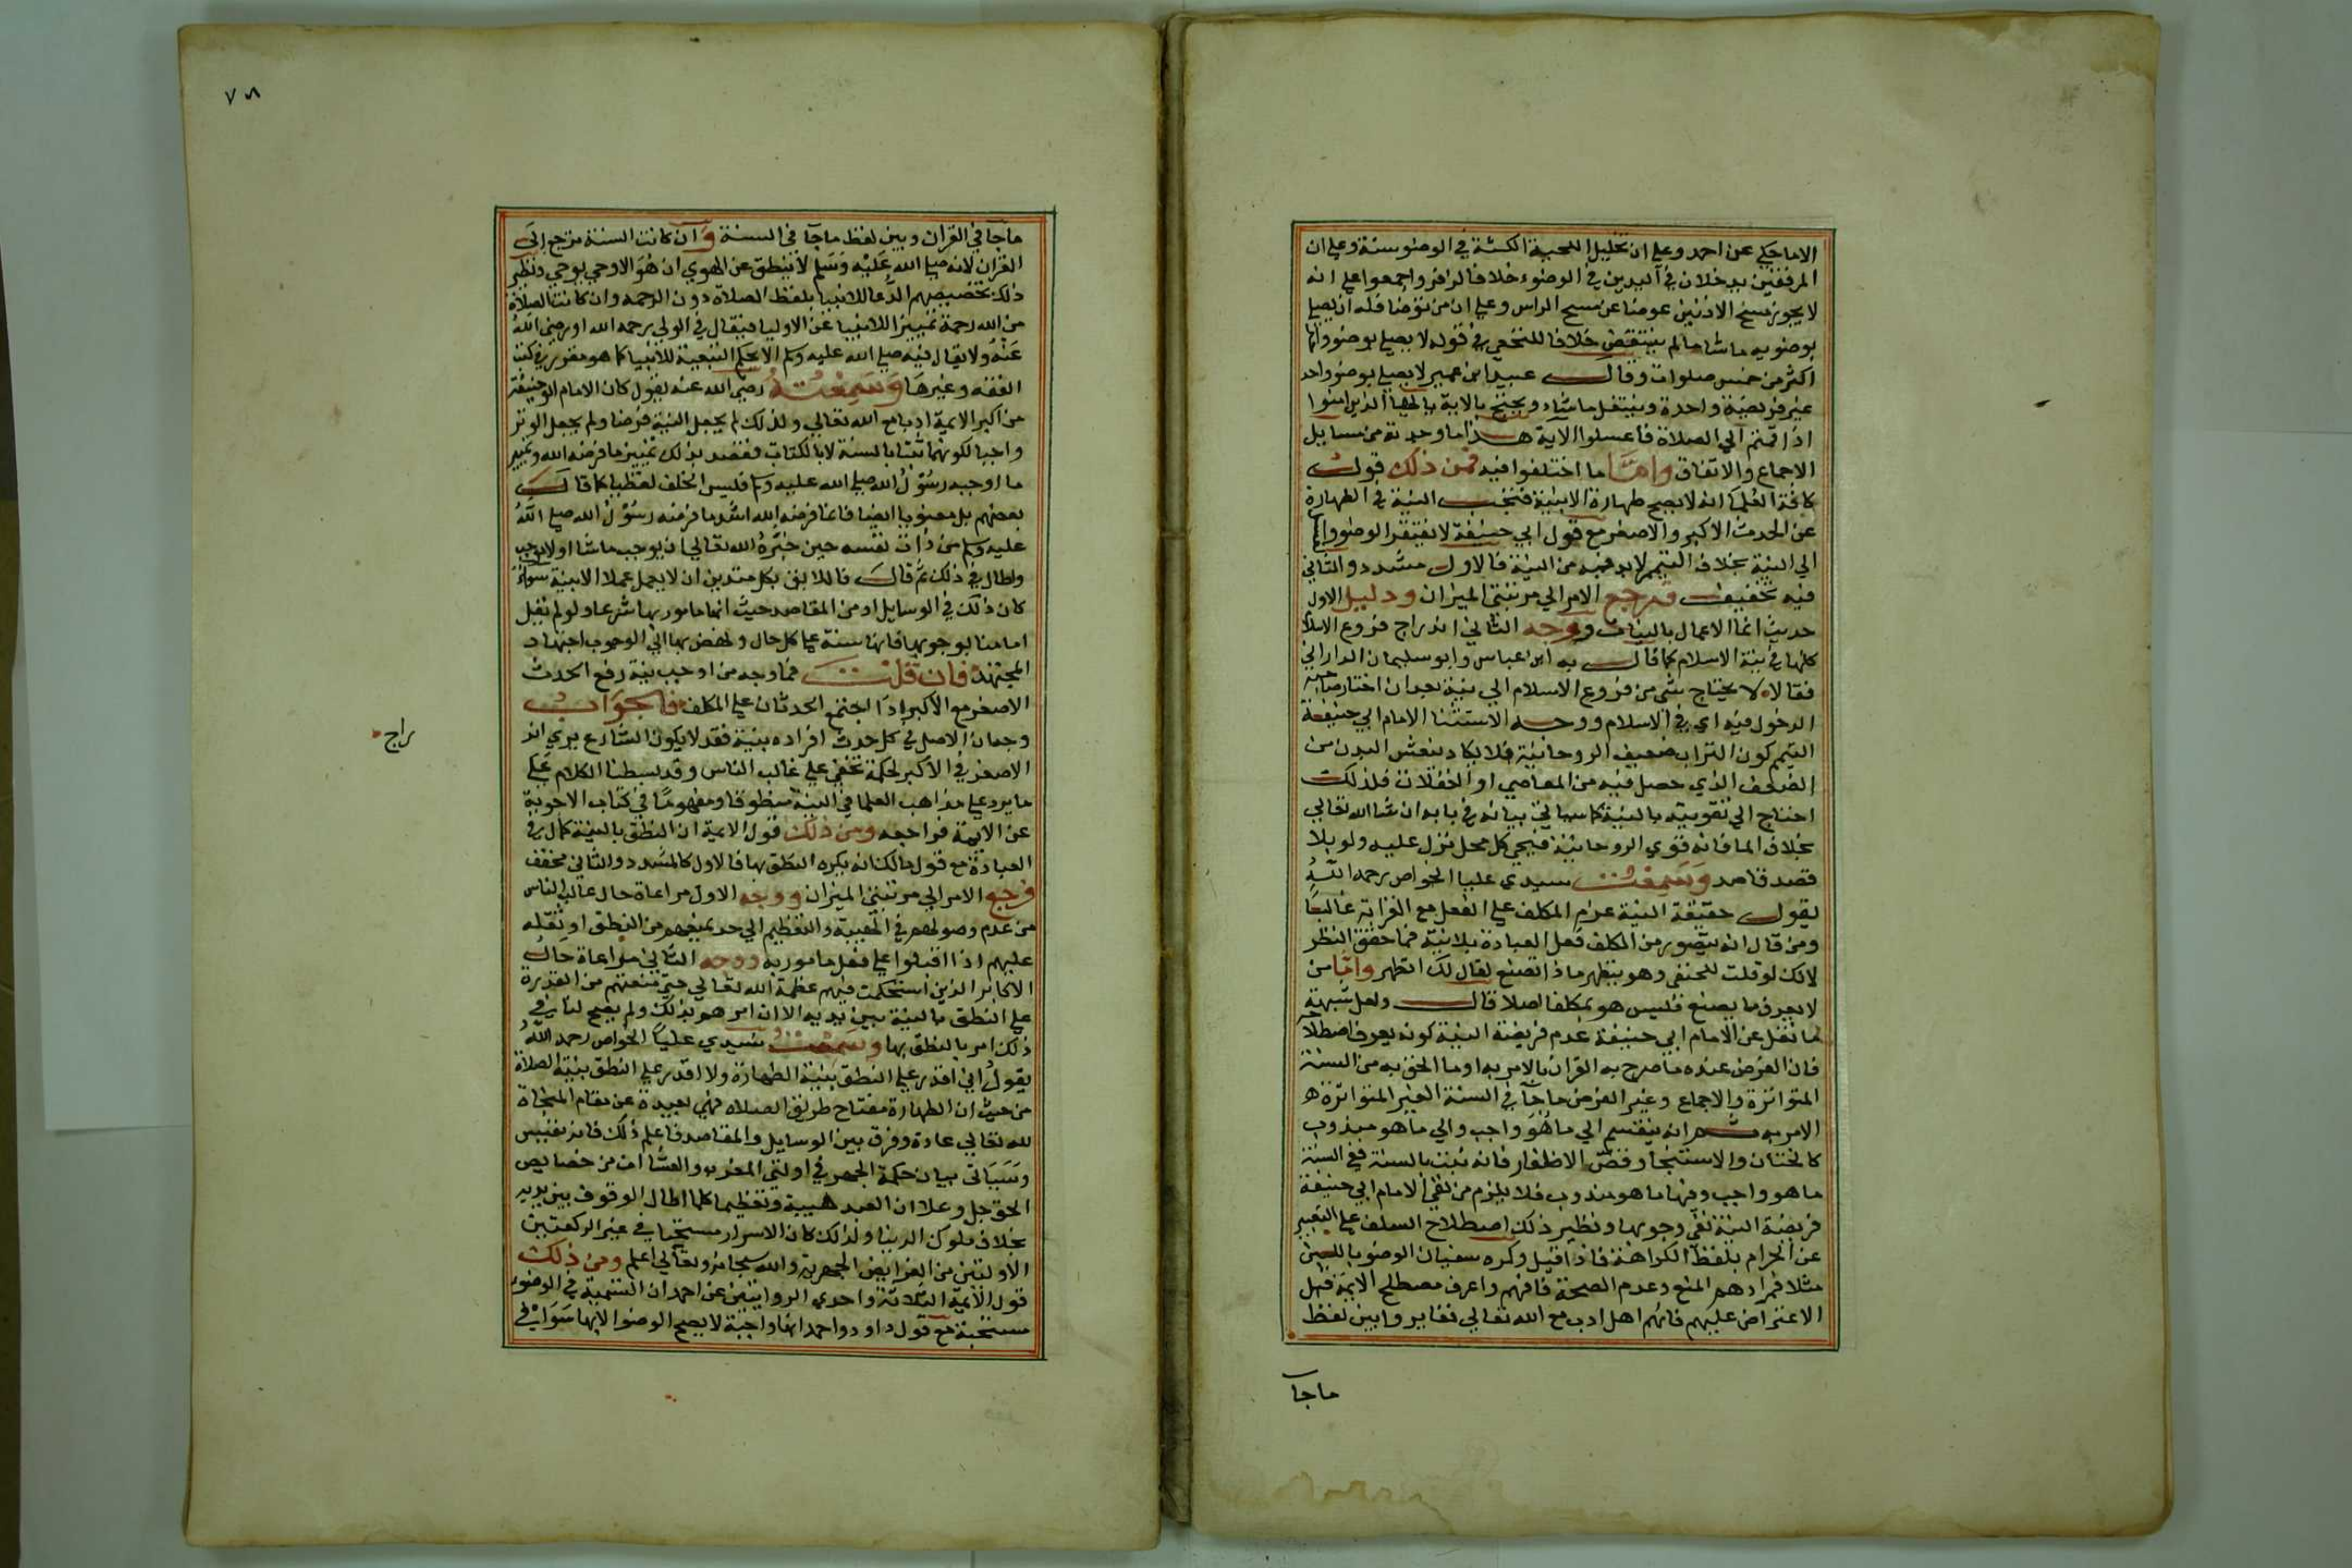 الاماحكي عن احمد وعلي ان تخليل اللحية الكثة في الوضوسنة وعلي ان
المرفقين يدخلان في اليدين في الوضوء خلافا لزفر واجمعوا علي انه
لا يجوز مسح الاذنين عوضا عن مسح الراس وعلي ان من توضا فله ان يصلي
بوضوبه ماشا مالم ينتقض خلافا للنخعي في قوله لا يصلي بوضوواحد
اكثر من خمس صلوات وقال عبيد ابن عمير لا يصلي بوضوواحد
غير فريضة واحدة ويتنفل ماشاء ويحتج بالاية يا ايها الذين امنوا
اذا قمتم الي الصلاة فاغسلوا الاية هذا ما وجدته من مسايل
الاجماع والاتفاق واما ما اختلفوا فيه فمن ذلك قول
كافة العلما انه لا يصح طهارة الا بنية فتجب النية في الطهارة
عن الحدث الاكبر والاصغر مع قول ابي حنيفة لا يفتقر الوضوو
الي النية بخلاف التيمم لابد فيه من النية فالاول مشدد والثاني
فيه تخفيف فرجع الامر الي مرتبتي الميزان ودليل الاول
حديث انما الاعمال بالنيات ووجه الثاني اندراج فروع الاسلا
كلها في نية الاسلام كما قال به ابن عباس وابو سليمان الداراني
فقالا لا يحتاج شي من فروع الاسلام الي نية بعد ان اختار صاحبه
الدخول فيه اي في الاسلام ووجه الاستثنا الامام ابي حنيفة
التيمم كون التراب ضعيف الروحانية فلا يكاد ينعش البدن من
الضعف الذي حصل فيه من المعاصي او الغفلات فلذلك
احتاج الي تقويته بالنية كما سياتي بيانه في بابه ان شا الله تعالي
بخلاف الما فانه قوي الروحانية فيحي كل محل نزل عليه ولو بلا
قصد قاصد وسمعت سيدي عليا الخواص رحمه الله
يقول حقيقة النية عزم المكلف علي الفعل مع القرانه غالبا
ومن قال انه يتصور من المكلف فعل العبادة بلانية فما حقق النظر
لانك لو قلت للحنفي وهو يتطهر ماذا تصنع لقال لك اتطهر واما من
لا يعرف ما يصنع فليس هو بمكلف اصلا قال ولعل شبهة
لما نقل عن الامام ابي حنيفة عدم فريضة النية كونه يعرف اصطلاحه
فان الفرض عنده ما صرح به القران بالامر به او ما الحق به من السنة
المتواترة والاجماع وغير الفرض ماجآ في السنة الغير المتواترة ه
الامر به شم انه ينقسم الي ما هو واجب والي ما هو مندوب
كالختان والاستنجا وقص الاظفار فانه ثبت بالسنة ففي السنة
ما هو واجب وفيها ما هو مندوب فلا يلزم من نفي الامام ابي حنيفة
فريضة النية نفي وجوبها ونظير ذلك اصطلاح السلف علي التعبير
عن الحرام بلفظ الكراهة فاذا قيل وكره سفيان الوضو باللبن
مثلا فمرادهم المنع وعدم الصحة فافهم واعرف مصطلح الايمة قبل
الاعتراض عليهم فانهم اهل ادب مع الله تعالي فغايروا بين لفظ
ماجا
٧٨
ماجآ في القران وبين لفظ ماجآ في السنة وان كانت السنة ترجع الي
القران لانه صلي الله عليه وسلم لا ينطق عن الهوي ان هو الا وحي يوحي ونظير
ذلك تخصيصهم الدعا للانبيا بلفظ الصلاة دون الرحمه وان كانت الصلاة
من الله رحمة تمييزا للانبيا عن الاوليا فيقال في الولي رحمه الله او رضي الله
عنه ولا يقال فيه صلي الله عليه وسلم الا بحكم التبعية للانبيا كما هو مقرر في كتب
الفقه وغيرها وسمعته رضي الله عنه يقول كان الامام ابو حنيفة
من اكبر الايمة ادبا مع الله تعالي ولذلك لم يجعل النية فرضا ولم يجعل الوتر
واجبا لكونهما ثبتا بالسنة لا بالكتاب فقصد بذلك تمييز ما فرضه الله وتمييز
ما اوجبه رسول الله صلي الله عليه وسلم فليس الخلف لفظيا كما قال
بعضهم بل معنويا ايضا فانما فرضه الله اشد ما فرضه رسول الله صلي الله
عليه وسلم من ذات نفسه حين خيره الله تعالي ان يوجب ماشا او لا يوجب
واطال في ذلك ثم قال فاللايق بكل متدين ان لا يعمل عملا الا بنية سواء
كان ذلك في الوسايل او من المقاصد حيث انها مامور بها شرعا ولو لم نقل
امامنا بوجوبها فانها سنة علي كل حال ونهض بها الي الوجوب اجتهاد
المجتهد فان قلت فما وجه من اوجب نية رفع الحدث
الاصغر مع الاكبر اذا اجتمع الحدثان علي المكلف فالجواب
وجهان الاصل في كل حدث افراده بنية فقد لا يكون الشارع يري اند
راج
الاصغر في الاكبر لحكمة تخفي علي غالب الناس وقد بسطنا الكلام علي
ما يرد علي مذاهب العلما في النية منطوقا ومفهوما في كتاب الاجوبة
عن الايمة فراجعه ومن ذلك قول الايمة ان النطق بالنية كمال في
العبادة مع قول مالك انه يكره النطق بها فالاول كالمشدد والثاني مخفف
فرجع الامر الي مرتبتي الميزان ووجه الاول مراعاة حال غالب الناس
من عدم وصولهم في الهيبة والتعظيم الي حد يمنعهم من النطق او يثقله
عليهم اذا اقبلوا علي فعل مامور به ووجه الثاني مراعاة حال
الاكابر الذين استحكمت فيهم عظمة الله تعالي حتي منعتهم من القدرة
علي النطق بالنية بين يديه الا ان امر هو بذلك ولم يصح لنا في
ذلك امر بالنطق بها وسمعت سيدي عليا الخواص رحمه الله
يقول اني اقدر علي النطق بنية الطهارة ولا اقدر علي النطق بنية الصلاة
من حيث ان الطهارة مفتاح طريق الصلاه فهي بعيدة عن مقام المناجاة
لله تعالي عادة وفرق بين الوسايل والمقاصد فاعلم ذلك فانه نفيس
وسياتي بيان حكمة الجهر في اولتي المغرب والعشا ان من خصايص
الحق جل وعلا ان العبد هيبة وتعظيما كلما اطال الوقوف بين يديه
بخلاف ملوك الدنيا ولذلك كان الاسرار مستحبا في غير الركعتين
الاولتين من الفرايض الجهرية والله سبحانه وتعالي اعلم ومن ذلك
قول الايمة الثلاثة واحدي الروايتين عن احمد ان التسمية في الوضو
مستحبة مع قول داود واحمد انها واجبة لا يصح الوضو الا بها سوا في